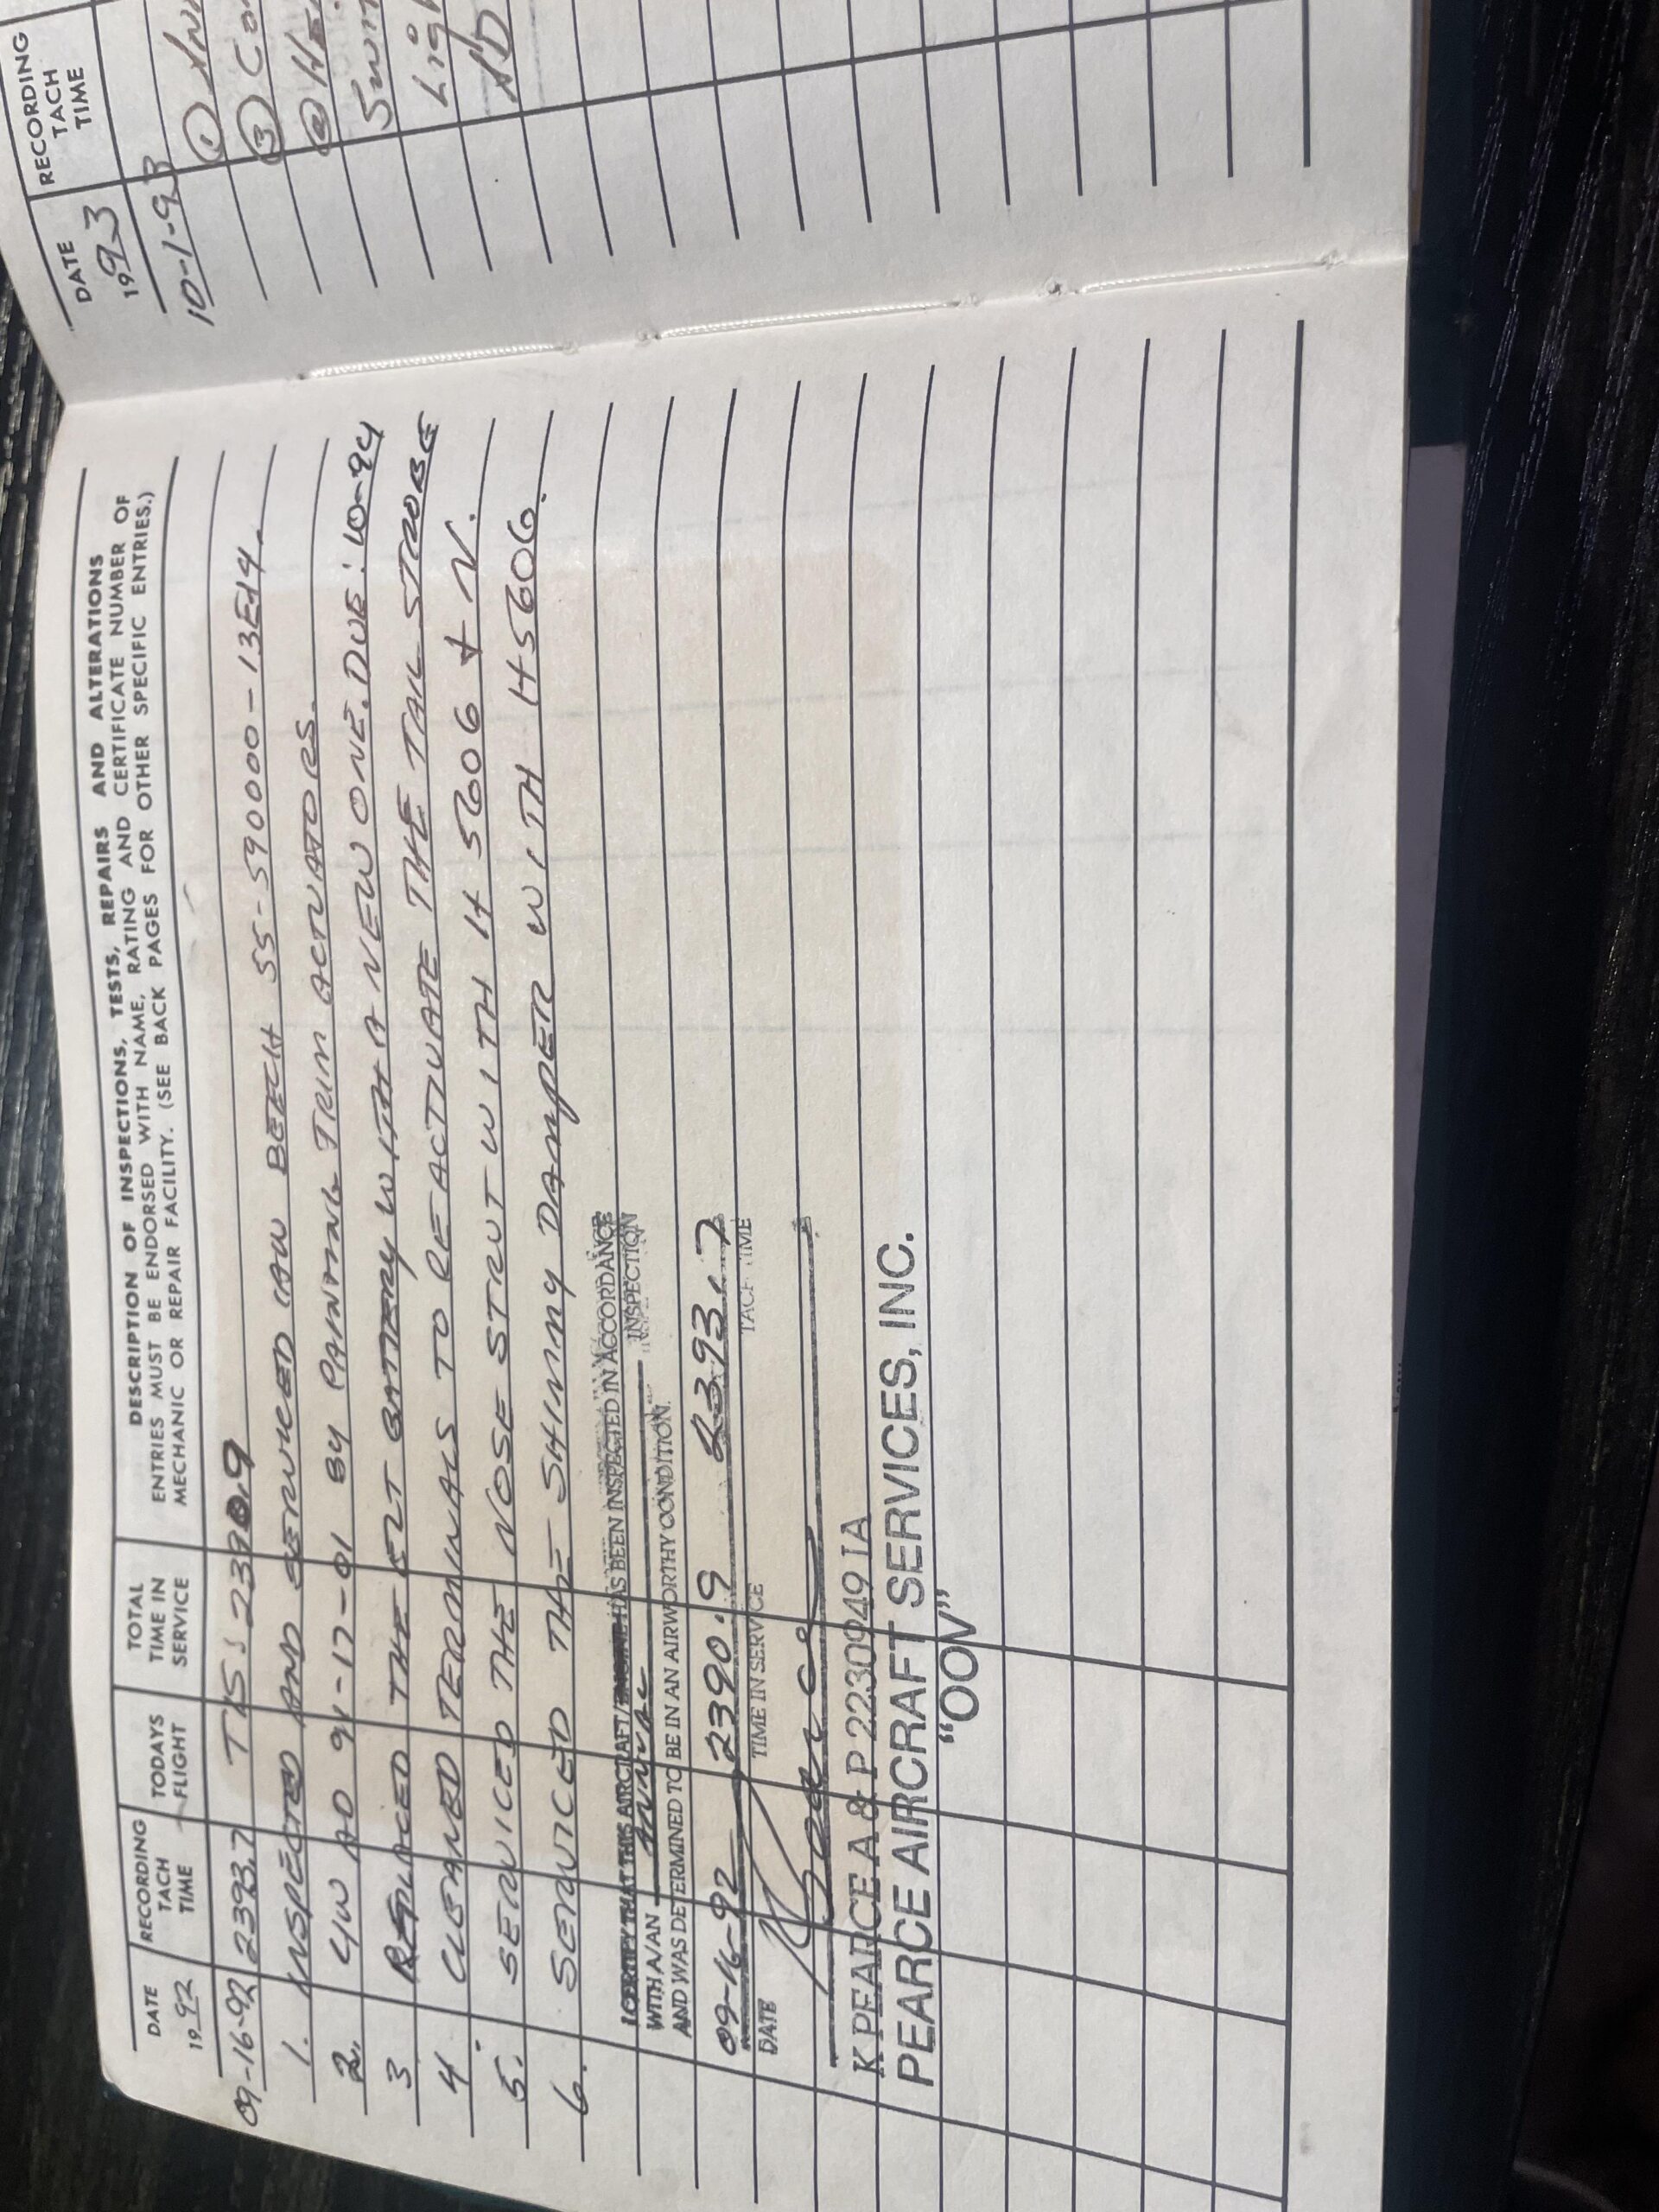 DATE
19 92
RECORDING
TACH
TIME
TODAYS
FLIGHT
TOTAL
TIME IN
SERVICE
DESCRIPTION OF INSPECTIONS, TESTS, REPAIRS AND ALTERATIONS
ENTRIES MUST BE ENDORSED WITH NAME, RATING AND CERTIFICATE NUMBER OF
MECHANIC OR REPAIR FACILITY. (SEE BACK PAGES FOR OTHER SPECIFIC ENTRIES.)
09-16-92 2393.7 TIS: 2390.9
1. INSPECTED AND SERVICED IAW BEECH 55-590000-13E14.
2. C/W AD 91-17-01 BY PAINTING TRIM ACTUATORS.
3 REPLACED THE ELT BATTERY WITH A NEW ONE. DUE: 10-94
4. CLEANED TERMINALS TO REACTIVATE THE TAIL STROBE
5. SERVICED THE NOSE STRUT WITH H 5606 & N.
6. SERVICED THE SHIMMY DAMPER WITH H5606.
I CERTIFY THAT THIS AIRCRAFT/ENGINE HAS BEEN INSPECTED IN ACCORDANCE
WITH A/AN ANNUAL INSPECTION
AND WAS DETERMINED TO BE IN AN AIRWORTHY CONDITION.
09-16-92 2390.9 2393.7
DATE TIME IN SERVICE TACH TIME
K PEARCE A & P 2230949 IA
PEARCE AIRCRAFT SERVICES, INC.
"OOV"
DATE
19 93
RECORDING
TACH
TIME
10-1-93
①
③
Lig
AD